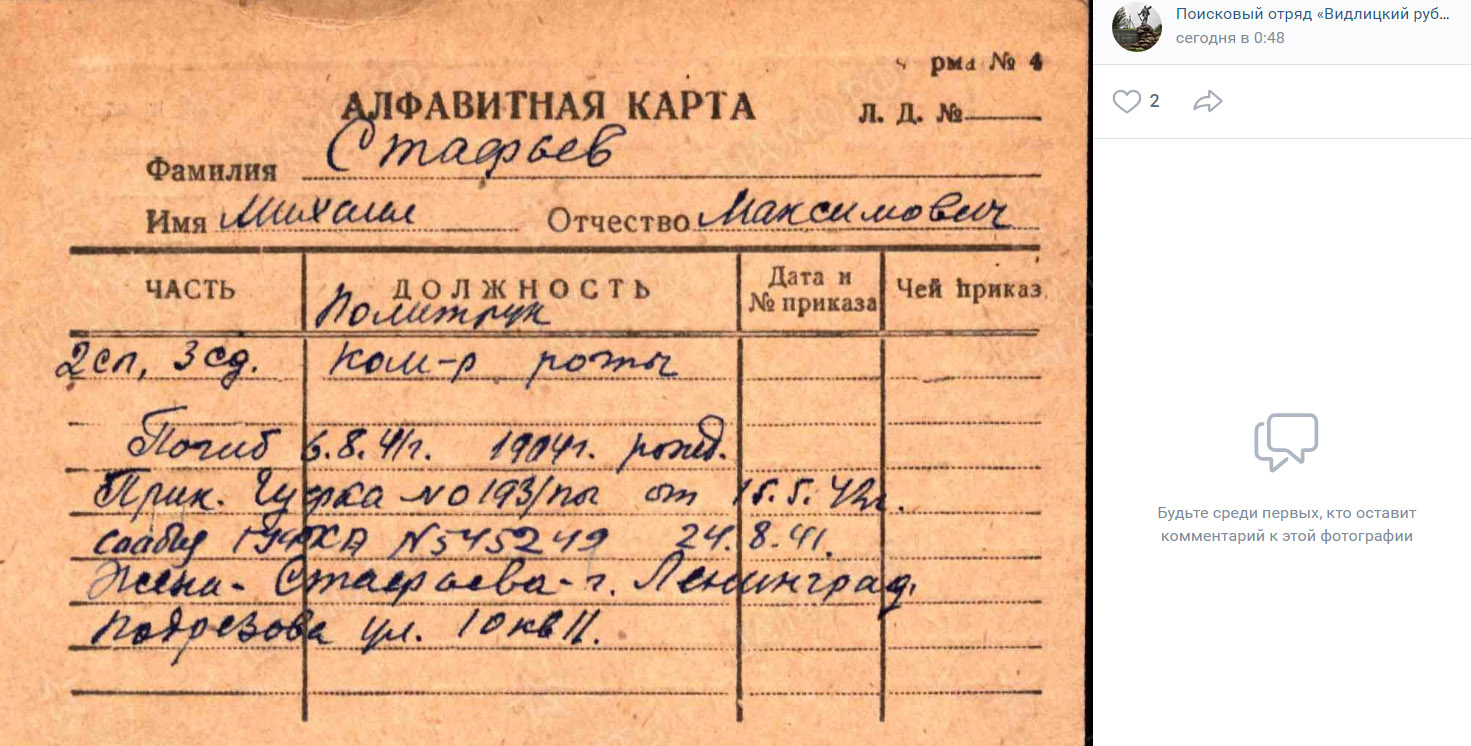 рма № 4
АЛФАВИТНАЯ КАРТА
Л. Д. №
Фамилия Стафьев
Имя Михаил Отчество Максимович
ЧАСТЬ ДОЛЖНОСТЬ Дата и № приказа Чей приказ
Политрук
2сп, 3сд. ком-р роты
Погиб 6.8.41г. 1904г. рожд.
Прик. Гуфка №0193/пог от 15.5.42г.
ГУРККА №545249 24.8.41.
Жена - Стафьева - г. Ленинград.
Подрезова ул. 10 кв 11.
Поисковый отряд «Видлицкий руб...
сегодня в 0:48
2
Будьте среди первых, кто оставит
комментарий к этой фотографии